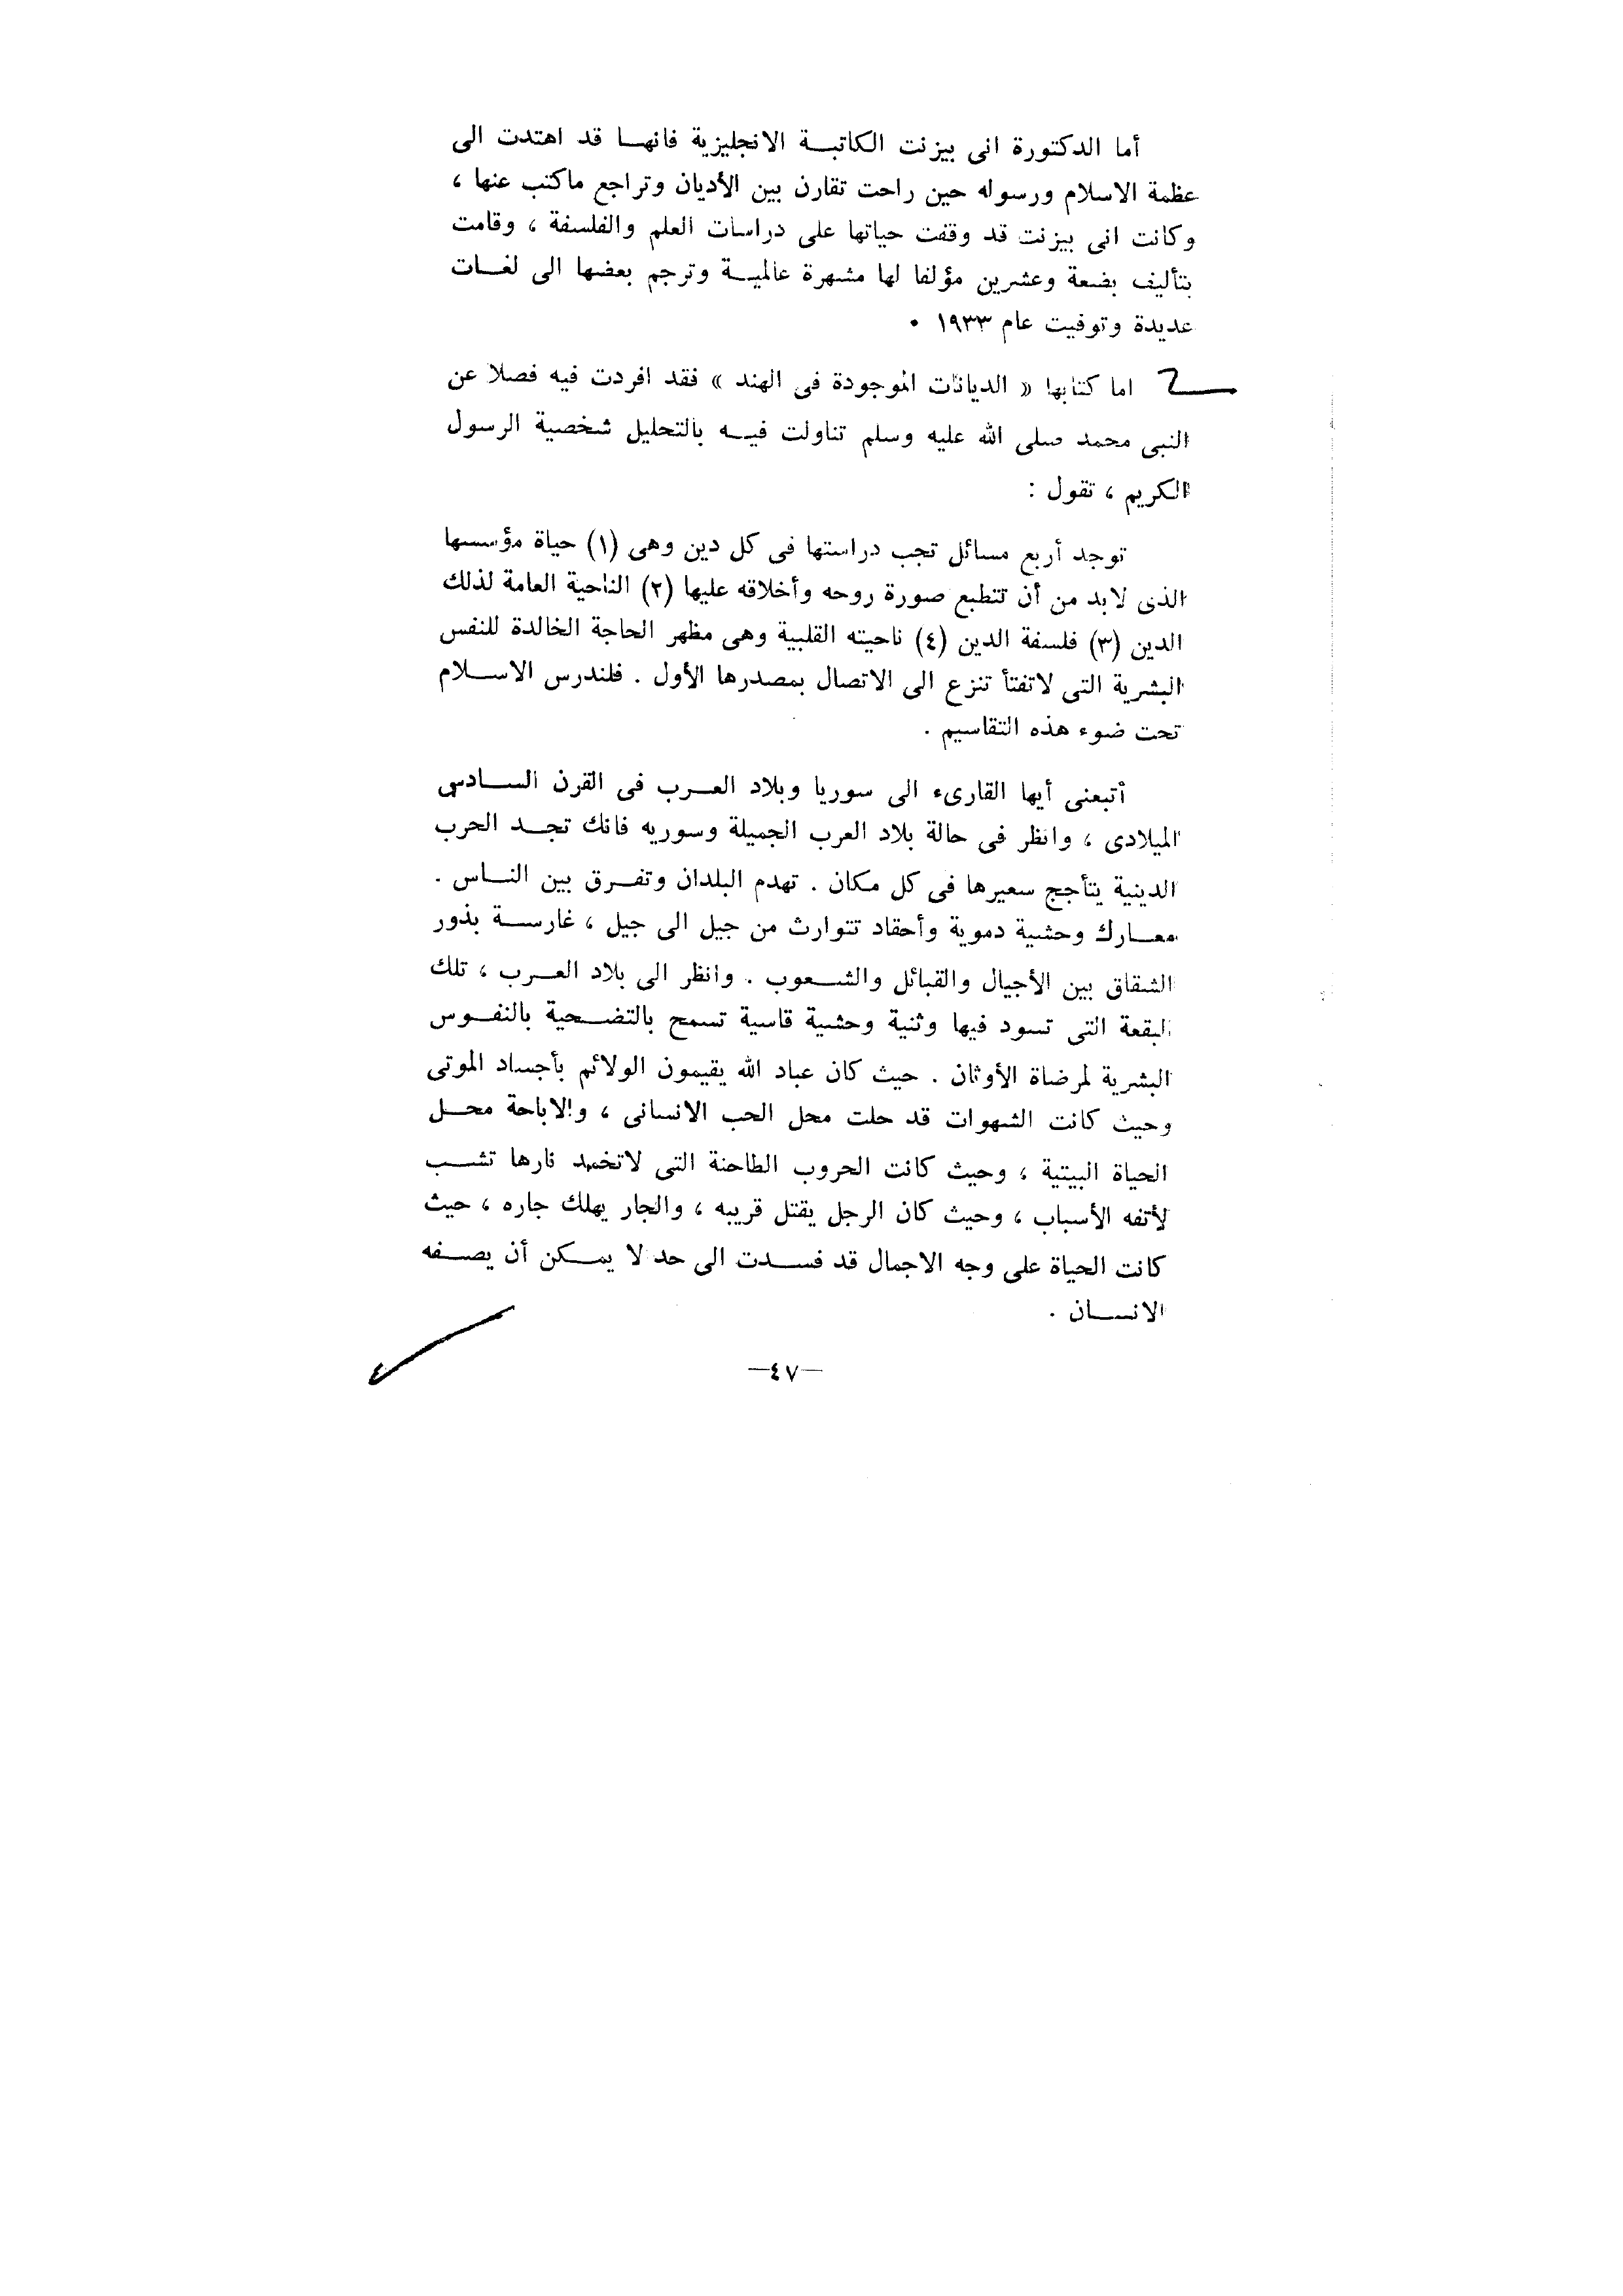 أما الدكتورة انى بيزنت الكاتبة الانجليزية فانها قد اهتدت الى
عظمة الاسلام ورسوله حين راحت تقارن بين الأديان وتراجع ماكتب عنها ،
وكانت انى بيزنت قد وقفت حياتها على دراسات العلم والفلسفة ، وقامت
بتأليف بضعة وعشرين مؤلفا لها مشهرة عالمية وترجم بعضها الى لغات
عديدة وتوفيت عام ١٩٣٣ .
اما كتابها « الديانات الموجودة فى الهند » فقد افردت فيه فصلا عن
النبى محمد صلى الله عليه وسلم تناولت فيه بالتحليل شخصية الرسول
الكريم ، تقول :
توجد أربع مسائل تجب دراستها فى كل دين وهى (١) حياة مؤسسها
الذى لابد من أن تتطبع صورة روحه وأخلاقه عليها (٢) الناحية العامة لذلك
الدين (٣) فلسفة الدين (٤) ناحيته القلبية وهى مظهر الحاجة الخالدة للنفس
البشرية التى لاتفتأ تنزع الى الاتصال بمصدرها الأول . فلندرس الاسلام
تحت ضوء هذه التقاسيم .
أتبعنى أيها القارىء الى سوريا وبلاد العرب فى القرن السادس
الميلادى ، وانظر فى حالة بلاد العرب الجميلة وسوريه فانك تجد الحرب
الدينية يتأجج سعيرها فى كل مكان . تهدم البلدان وتفرق بين الناس .
معارك وحشية دموية وأحقاد تتوارث من جيل الى جيل ، غارسة بذور
الشقاق بين الأجيال والقبائل والشعوب . وانظر الى بلاد العرب ، تلك
البقعة التى تسود فيها وثنية وحشية قاسية تسمح بالتضحية بالنفوس
البشرية لمرضاة الأوثان . حيث كان عباد الله يقيمون الولائم بأجساد الموتى
وحيث كانت الشهوات قد حلت محل الحب الانسانى ، والاباحة محل
الحياة البيتية ، وحيث كانت الحروب الطاحنة التى لاتخمد نارها تشب
لأتفه الأسباب ، وحيث كان الرجل يقتل قريبه ، والجار يهلك جاره ، حيث
كانت الحياة على وجه الاجمال قد فسدت الى حد لا يمكن أن يصفه
الانسان .
—٤٧—